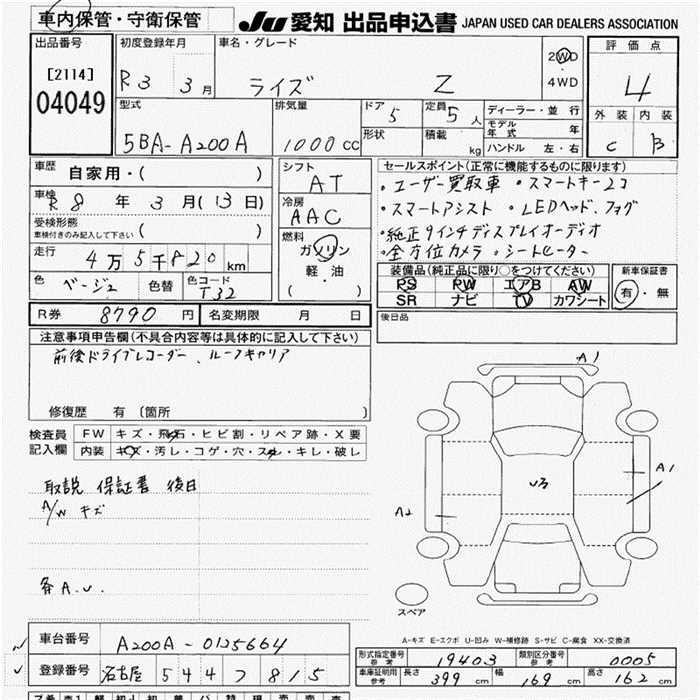 車内保管・守衛保管
JU 愛知 出品申込書 JAPAN USED CAR DEALERS ASSOCIATION
出品番号 [2114] 04049
初度登録年月 R3 3月
車名・グレード ライズ Z
2WD・4WD
評価点 4
外装 C 内装 B
型式 5BA-A200A
排気量 1000cc
ドア 5
形状
定員 5人
積載 kg
ディーラー・並行
モデル年式 年
ハンドル 左・右
車歴 自家用・( )
車検 R8年3月(13日)
受検形態
車検付きのみ記入して下さい ( )
走行 4万5千820km
色 ベージュ 色替 色コード T32
シフト AT
冷房 AAC
燃料 ガソリン
軽・油
( )
セールスポイント(正常に機能するものに限ります)
・ユーザー買取車 ・スマートキー2コ
・スマートアシスト ・LEDヘッド、フォグ
・純正9インチディスプレイオーディオ
・全方位カメラ ・シートヒーター
装備品(純正品に限り○をつけてください)
PS PW エアB AW
SR ナビ TV カワシート
新車保証書
有・無
R券 8790円 名変期限 月 日
後日品
注意事項申告欄(不具合内容等は具体的に記入して下さい)
前後ドライブレコーダー、ルーフキャリア
修復歴 有 〔箇所 〕
検査員記入欄
FW キズ・飛石・ヒビ割・リペア跡・X要
内装 キズ・汚レ・コゲ・穴・スレ・キレ・破レ
取説 保証書 後日
A/W キズ
各A.U.
A1
A1
A2
スペア
A-キズ E-エクボ U-凹み W-補修跡 S-サビ C-腐食 XX-交換済
車台番号 A200A-0125664
登録番号 名古屋 544 フ 815
形式指定番号 参考 19403
類別区分番号 参考 0005
車庫証明用 参考 長さ 399cm 幅 169cm 高さ 162cm